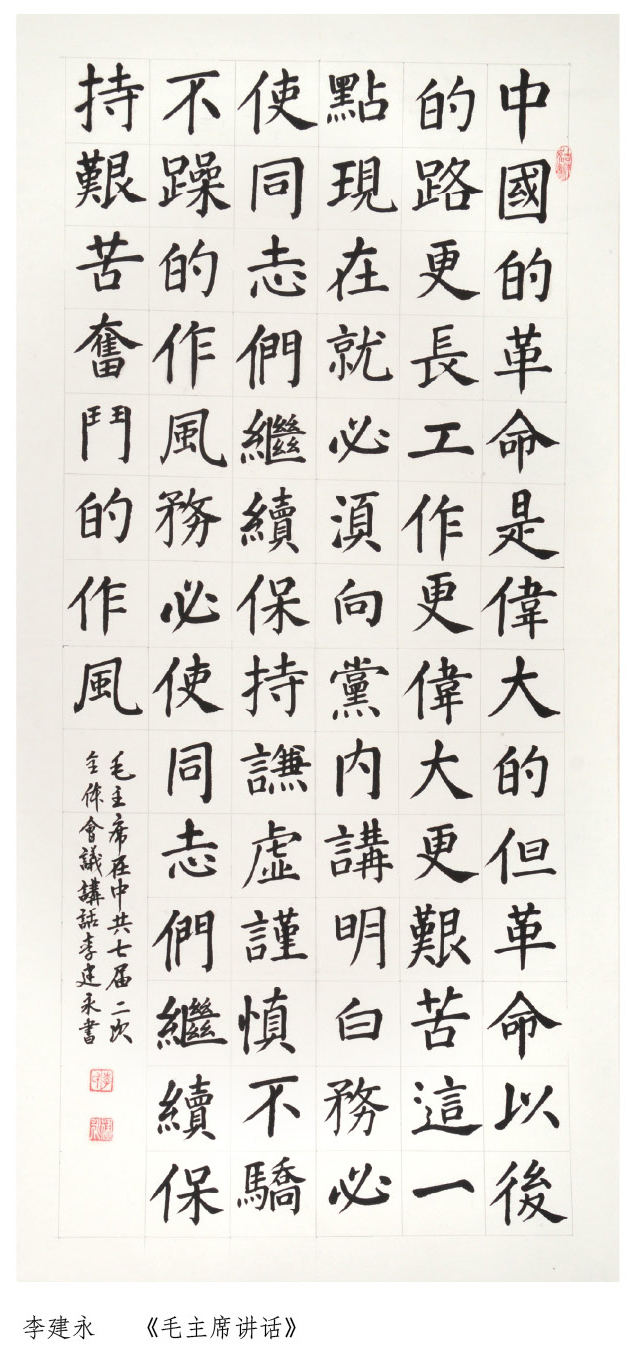 中國的革命是偉大的但革命以後
的路更長工作更偉大更艱苦這一
點現在就必須向黨內講明白務必
使同志們繼續保持謙虛謹慎不驕
不躁的作風務必使同志們繼續保
持艱苦奮鬥的作風
毛主席在中共七届二次
全体會議講話李建永書
李建永 《毛主席讲话》